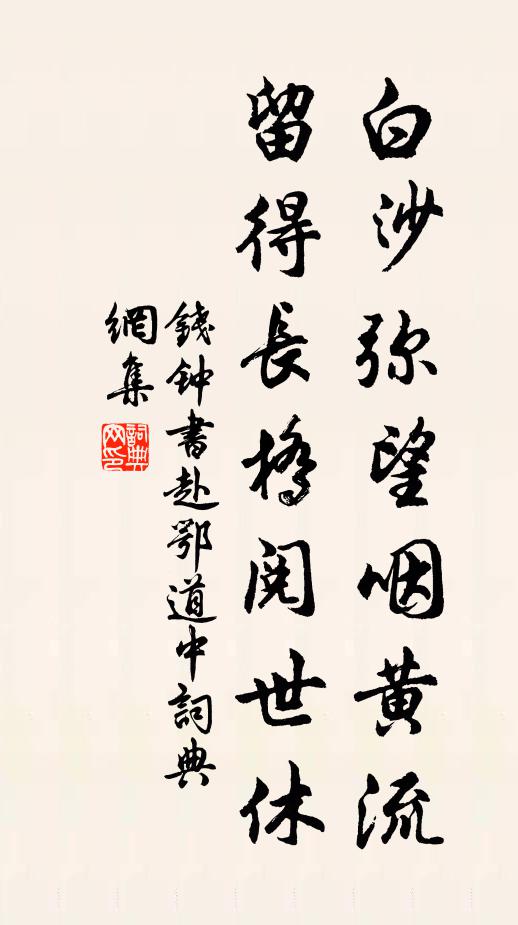 白沙弥望咽黄流
留得長橋閱世休
錢钟書赴鄂道中詞典
網集
詞典
网印